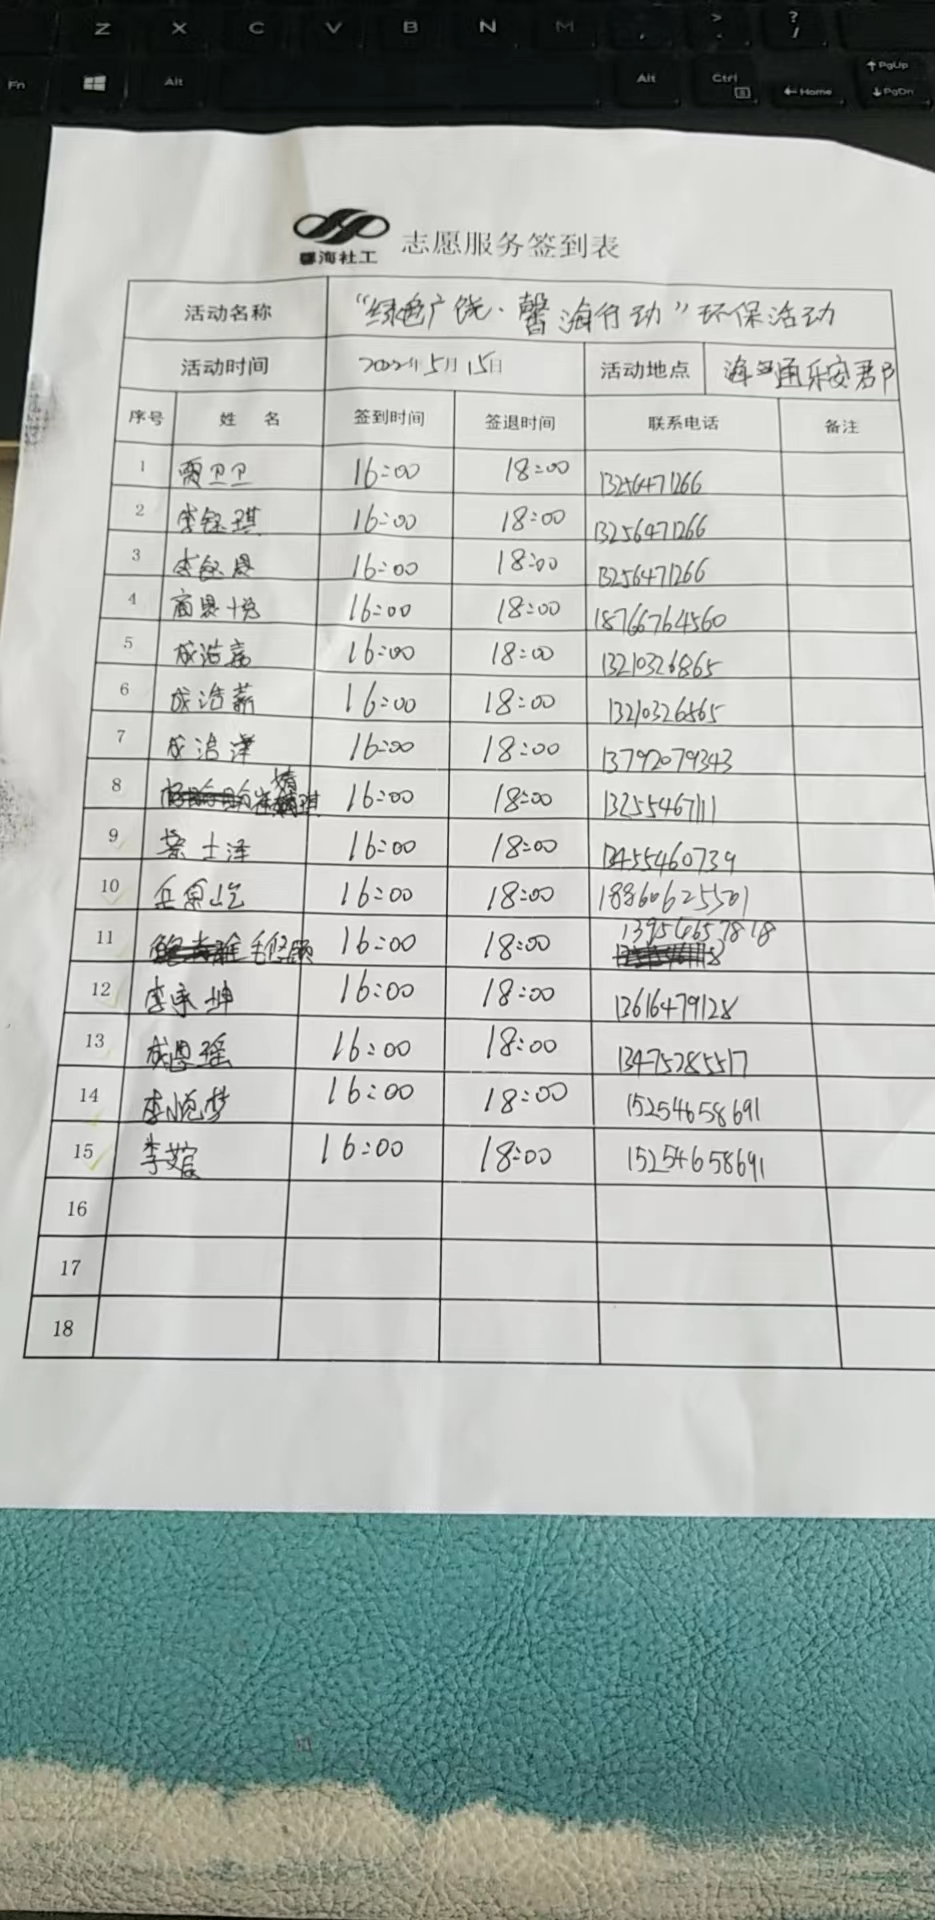 Z X C V B N M , > . ? /
Fn Alt Alt Ctrl ←Home ↑PgUp ↓PgDn
馨海社工 志愿服务签到表
活动名称 "绿色广饶·馨海行动"环保活动
活动时间 2022年5月15日 活动地点 海通乐安郡
序号 姓 名 签到时间 签退时间 联系电话 备注
1 贾卫卫 16:00 18:00 13256471266
2 李钰琪 16:00 18:00 13256471266
3 李钰晨 16:00 18:00 13256471266
4 商恩悦 16:00 18:00 18766764560
5 成浩嘉 16:00 18:00 13210326865
6 成浩薪 16:00 18:00 13210326865
7 成浩泽 16:00 18:00 13792079343
8 16:00 18:00 13255467111
9 士泽 16:00 18:00 13455460739
10 16:00 18:00 18860625501
11 毛悠颐 16:00 18:00 13954657818
12 李承坤 16:00 18:00 13616479128
13 成恩瑶 16:00 18:00 13475285517
14 李悦梦 16:00 18:00 15254658691
15 李 16:00 18:00 15254658691
16
17
18